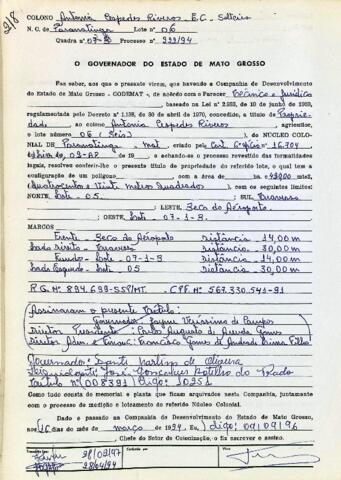 218
COLONO Antonia Cespedes Riveros - E.C. - Solteira
N. C. de Paranatinga Lote nº 06
Quadra nº 07-B Processo nº 222/94
O GOVERNADOR DO ESTADO DE MATO GROSSO
Faz saber, aos que a presente virem, que havendo a Companhia de Desenvolvimento
do Estado de Mato Grosso - CODEMAT -, de acordo com o Parecer Técnico e Jurídico
, baseado na Lei nº 2.253, de 10 de junho de 1969,
regulamentado pelo Decreto nº 1.138, de 30 de abril de 1970, concedido, a título de Proprie
dade, ao colono Antônia Cespedes Riveros, agricultor,
o lote número 06 (Seis), do NÚCLEO COLO-
NIAL DE Paranatinga, mat. Cart. 6º ofício nº 16.704
de 19 , e achando-se o processo revestido das formalidades
legais, resolveu conferir-lhe o presente título de propriedade do referido lote, o qual tem a
configuração de um polígono com a área de 420,00 mts.
(Quatrocentos e Vinte metros quadrados), com os seguintes limites:
NORTE, Lote - 05 ; SUL, Travessa
; LESTE, Beco do Aéroporto
; OESTE, Lote - 07-1-B.
MARCOS
Frente - Beco do Aéroporto Distância - 14,00 m
Lado Direito - Travessa Distância - 30,00 m
Fundo - Lote - 07-1-B Distância - 14,00 m
Lado Esquerdo - Lote - 05 Distância - 30,00 m
R.G. Nº 894.699-SSP/MT. C.P.F. Nº 567.330.541-91
Assinaram o presente título:
Governador: Jayme Veríssimo de Campos
Diretor Presidente: Carlos Augusto de Arruda Gomes
Diretor Adm. e Financ: Francisco Gomes de Andrade Lima Filho
Governador: Dante Martins de Oliveira
Liquidante: José Gonçalves Botelho do Prado
Título nº 008391 / Digo: 10251
Como tudo consta do memorial e planta que ficam arquivados nesta Companhia, juntamente
com o processo de medição e loteamento do referido Núcleo Colonial.
Dado e passado na Companhia de Desenvolvimento do Estado de Mato Grosso,
aos 16 dias do mês de março de 1994. Eu, digo: 09/09/96
, Chefe do Setor de Colonização, o fiz escrever e assino.
Conferido por: Visto
28/02/97
28/04/94